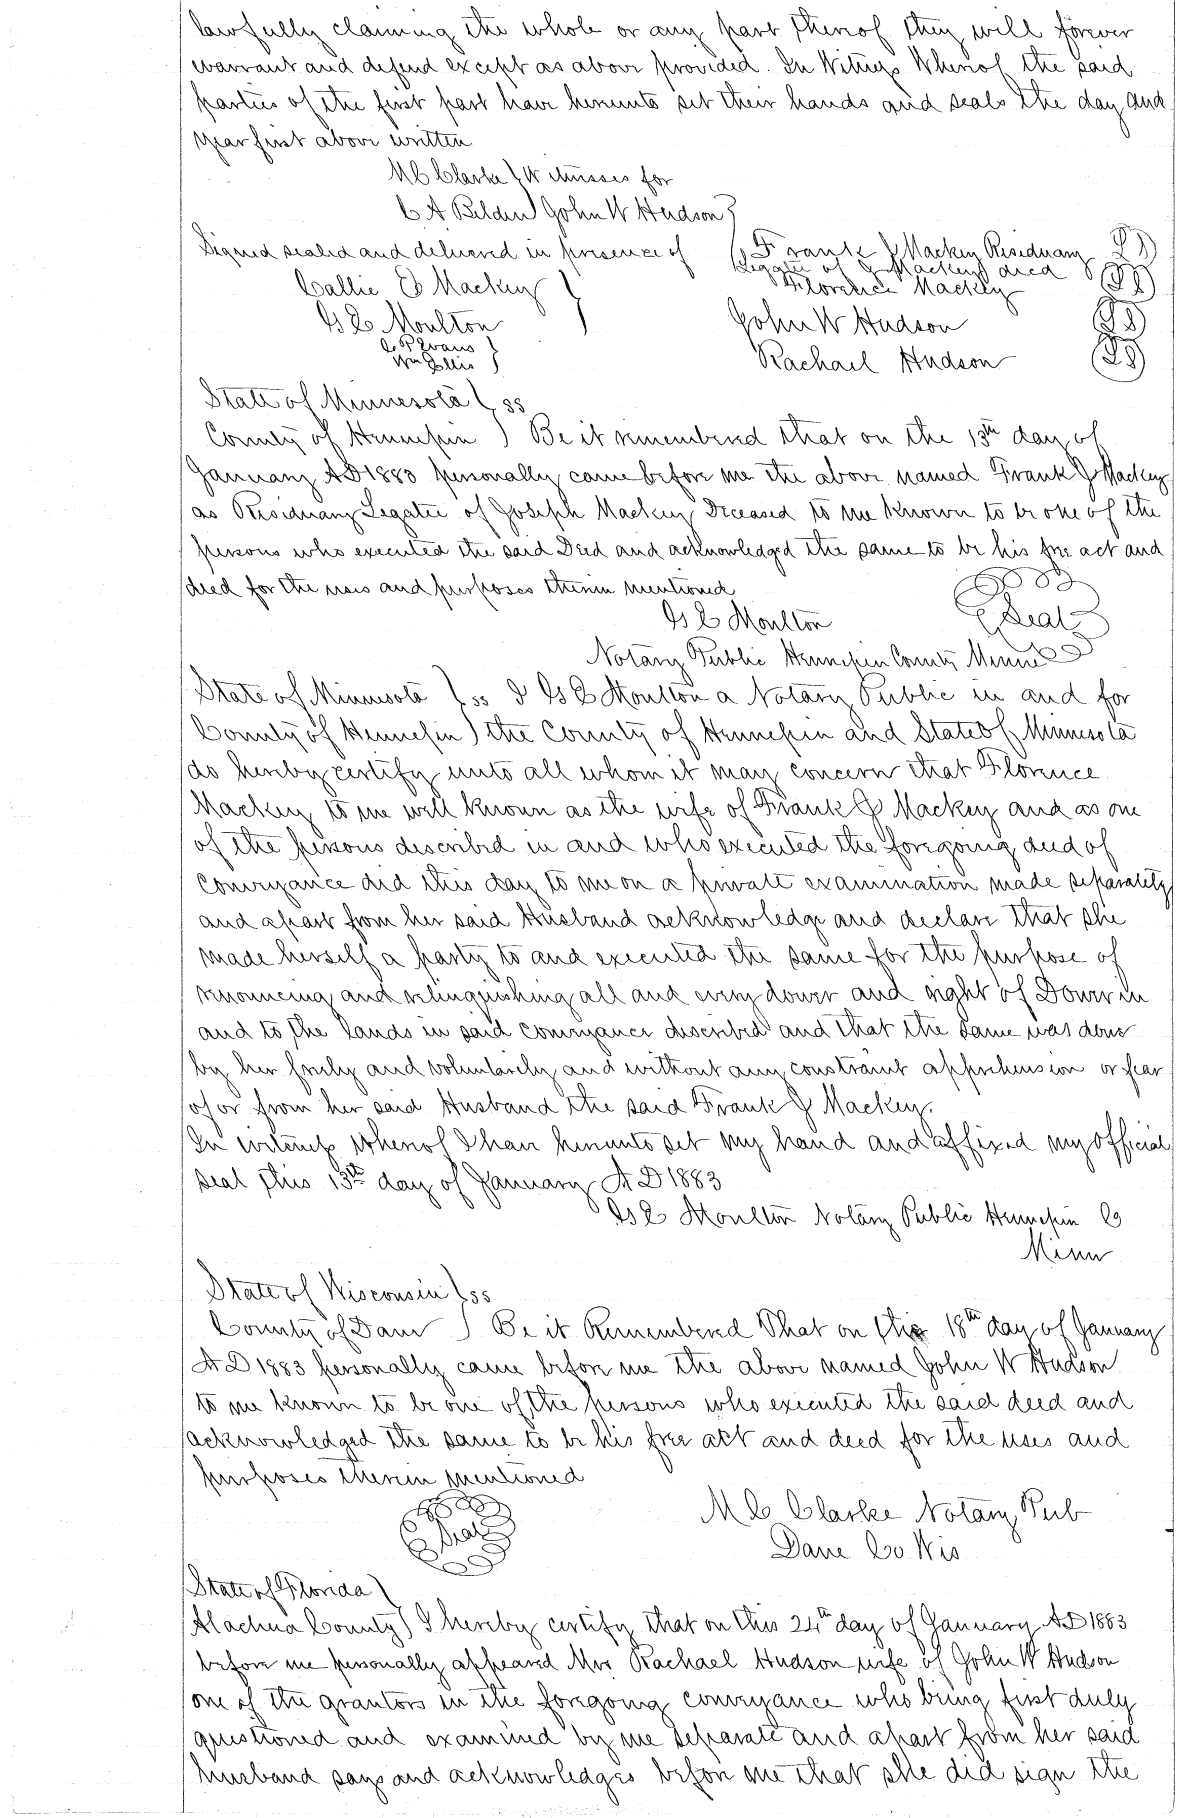 lawfully claiming the whole or any part thereof they will forever
warrant and defend except as above provided. In Witness Whereof the said
parties of the first part have hereunto set their hands and seals the day and
year first above written
M C Clarke } Witnesses for
C A Belden } John W Hudson }
Signed sealed and delivered in presence of
Frank J Mackey Residuary
Legatee of J Mackey decd
Callie E Mackey
Florence Mackey
G E Moulton
John W Hudson
C P Evans
Wm Ellis
Rachael Hudson
State of Minnesota } ss
County of Hennepin } Be it remembered that on the 13th day of
January AD 1883 personally came before me the above named Frank J Mackey
as Residuary Legatee of Joseph Mackey Deceased to me known to be one of the
persons who executed the said Deed and acknowledged the same to be his free act and
deed for the uses and purposes therein mentioned
Seal
G E Moulton
Notary Public Hennepin County Minne
State of Minnesota } ss I G E Moulton a Notary Public in and for
County of Hennepin } the County of Hennepin and State of Minnesota
do hereby certify unto all whom it may concern that Florence
Mackey to me well known as the wife of Frank J Mackey and as one
of the persons described in and who executed the foregoing deed of
conveyance did this day to me on a private examination made separately
and apart from her said Husband acknowledge and declare that she
made herself a party to and executed the same for the purpose of
renouncing and relinquishing all and every dower and right of Dower in
and to the lands in said conveyance described and that the same was done
by her freely and voluntarily and without any constraint apprehension or fear
of or from her said Husband the said Frank J Mackey.
In witness whereof I have hereunto set my hand and affixed my official
seal this 13th day of January A D 1883
G E Moulton Notary Public Hennepin Co
Minn
State of Wisconsin } ss
County of Dane } Be it Remembered That on the 18th day of January
A D 1883 personally came before me the above named John W Hudson
to me known to be one of the persons who executed the said deed and
acknowledged the same to be his free act and deed for the uses and
purposes therein mentioned
Seal
M C Clarke Notary Pub
Dane Co Wis
State of Florida }
Alachua County } I hereby certify that on this 24th day of January AD 1883
before me personally appeared Mrs Rachael Hudson wife of John W Hudson
one of the grantors in the foregoing conveyance who being first duly
questioned and examined by me separate and apart from her said
husband says and acknowledges before me that she did sign the